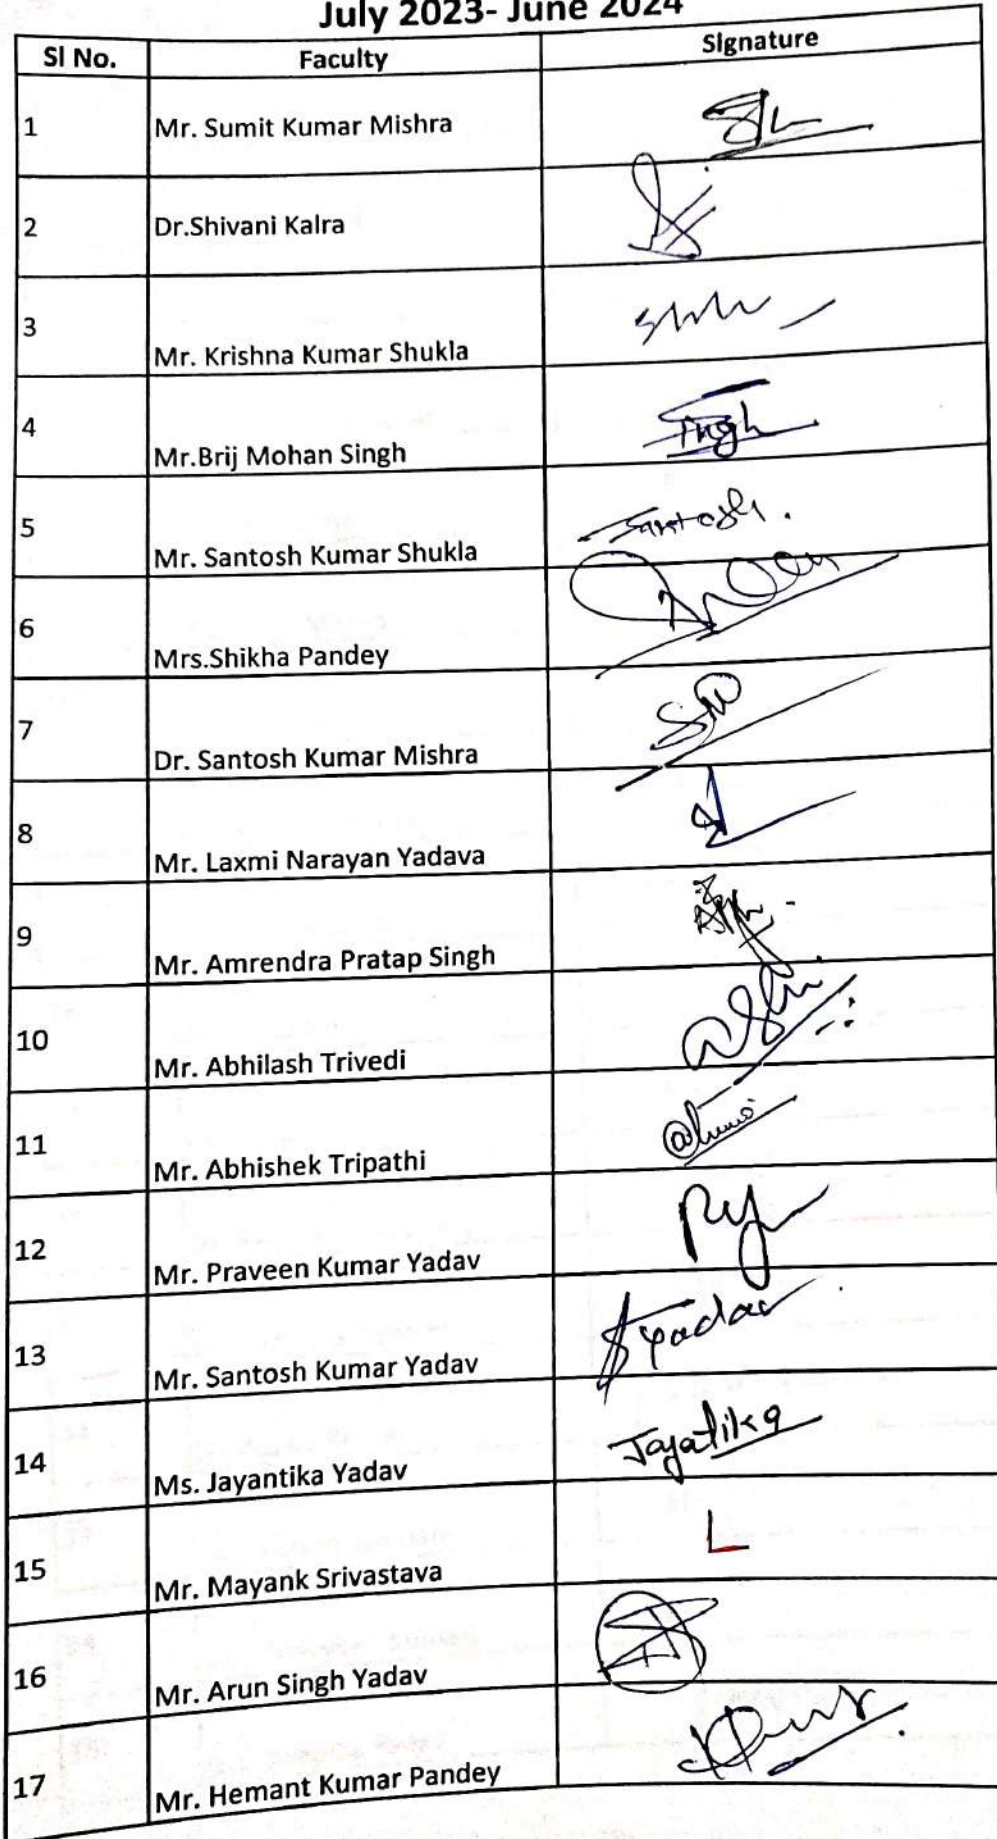 July 2023- June 2024
Sl No. Faculty Signature
1 Mr. Sumit Kumar Mishra
2 Dr.Shivani Kalra
3 Mr. Krishna Kumar Shukla
4 Mr.Brij Mohan Singh Singh
5 Mr. Santosh Kumar Shukla Santosh.
6 Mrs.Shikha Pandey
7 Dr. Santosh Kumar Mishra
8 Mr. Laxmi Narayan Yadava
9 Mr. Amrendra Pratap Singh
10 Mr. Abhilash Trivedi
11 Mr. Abhishek Tripathi
12 Mr. Praveen Kumar Yadav
13 Mr. Santosh Kumar Yadav Yadav
14 Ms. Jayantika Yadav Jayatika
15 Mr. Mayank Srivastava L
16 Mr. Arun Singh Yadav
17 Mr. Hemant Kumar Pandey